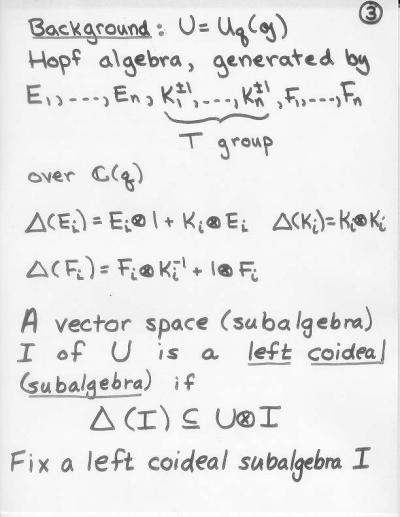 ③
Background: U = U_q(𝔤)
Hopf algebra, generated by
E₁,----,Eₙ, K₁^{±1},----,Kₙ^{±1}, F₁,----,Fₙ
T group
over ℂ(q)
Δ(Eᵢ) = Eᵢ⊗1 + Kᵢ⊗Eᵢ Δ(Kᵢ)=Kᵢ⊗Kᵢ
Δ(Fᵢ) = Fᵢ⊗Kᵢ⁻¹ + 1⊗Fᵢ
A vector space (subalgebra)
I of U is a left coideal
(subalgebra) if
Δ(I) ⊆ U⊗I
Fix a left coideal subalgebra I